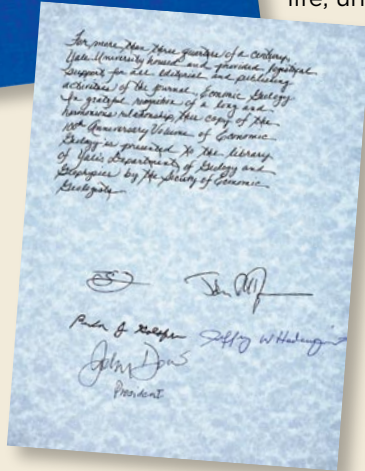 life, an
For more than three quarters of a century,
Yale University housed and provided logistical
support for the editorial and publishing
activities of the journal, Economic Geology
In grateful recognition of a long and
harmonious relationship, this copy of the
100th Anniversary Volume of Economic
Geology is presented to the library
of Yale's Department of Geology and
Geophysics by the Society of Economic
Geologists
John
President